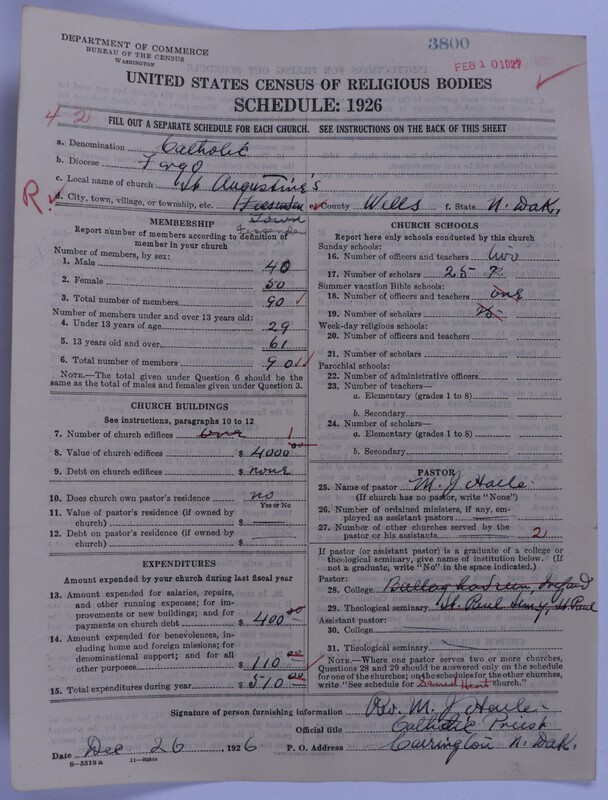 DEPARTMENT OF COMMERCE
BUREAU OF THE CENSUS
WASHINGTON
3800
FEB 10 1927
UNITED STATES CENSUS OF RELIGIOUS BODIES
SCHEDULE: 1926
42
FILL OUT A SEPARATE SCHEDULE FOR EACH CHURCH. SEE INSTRUCTIONS ON THE BACK OF THIS SHEET
a. Denomination Catholic
b. Diocese Fargo
c. Local name of church St Augustine's
R.
d. City, town, village, or township, etc. Fessenden e. County Wells f. State N. Dak.
Town
Fessenden
MEMBERSHIP
Report number of members according to definition of member in your church
Number of members, by sex:
1. Male 40
2. Female 50
3. Total number of members 90
Number of members under and over 13 years old:
4. Under 13 years of age 29
5. 13 years old and over 61
6. Total number of members 90
NOTE.—The total given under Question 6 should be the same as the total of males and females given under Question 3.
CHURCH BUILDINGS
See instructions, paragraphs 10 to 12
7. Number of church edifices one 1
8. Value of church edifices $ 4000 00
9. Debt on church edifices $ none
10. Does church own pastor's residence no
Yes or No
11. Value of pastor's residence (if owned by church) $
12. Debt on pastor's residence (if owned by church) $
EXPENDITURES
Amount expended by your church during last fiscal year
13. Amount expended for salaries, repairs, and other running expenses; for improvements or new buildings; and for payments on church debt $ 400 00
14. Amount expended for benevolences, including home and foreign missions; for denominational support; and for all other purposes $ 110 00
15. Total expenditures during year $ 510 00
CHURCH SCHOOLS
Report here only schools conducted by this church
Sunday schools:
16. Number of officers and teachers two
17. Number of scholars 25
Summer vacation Bible schools:
18. Number of officers and teachers one
19. Number of scholars 25
Week-day religious schools:
20. Number of officers and teachers
21. Number of scholars
Parochial schools:
22. Number of administrative officers
23. Number of teachers—
a. Elementary (grades 1 to 8)
b. Secondary
24. Number of scholars—
a. Elementary (grades 1 to 8)
b. Secondary
PASTOR
25. Name of pastor M. J
(If church has no pastor, write "None")
26. Number of ordained ministers, if any, employed as assistant pastors
27. Number of other churches served by the pastor or his assistants 2
If pastor (or assistant pastor) is a graduate of a college or theological seminary, give name of institution below. (If not a graduate, write "No" in the space indicated.)
Pastor:
28. College Ireland
29. Theological seminary St. Paul Smry, St Paul
Assistant pastor:
30. College
31. Theological seminary
NOTE.—Where one pastor serves two or more churches, Questions 28 and 29 should be answered only on the schedule for one of the churches; on the schedules for the other churches, write "See schedule for Sacred Heart church."
Signature of person furnishing information Rev. M. J
Official title Catholic Priest
Date Dec 26, 1926 P. O. Address Carrington N. Dak.
8-5518a